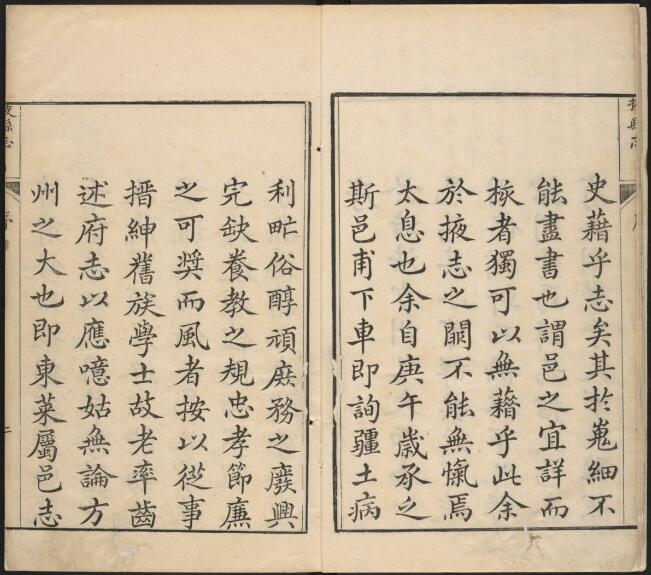 史藉乎志矣其扵嵬細不
能盡書也謂邑之宜詳而
核者獨可以無藉乎此余
於掖志之闕不能無愾焉
太息也余自庚午歲承之
斯邑甫下車即詢疆土病
利甿俗醇頑庶務之廢興
完缺養教之規忠孝節廉
之可奬而風者按以從事
搢紳舊族學士故老率齒
述府志以應噫姑無論方
州之大也即東萊屬邑志
掖縣志
序
二